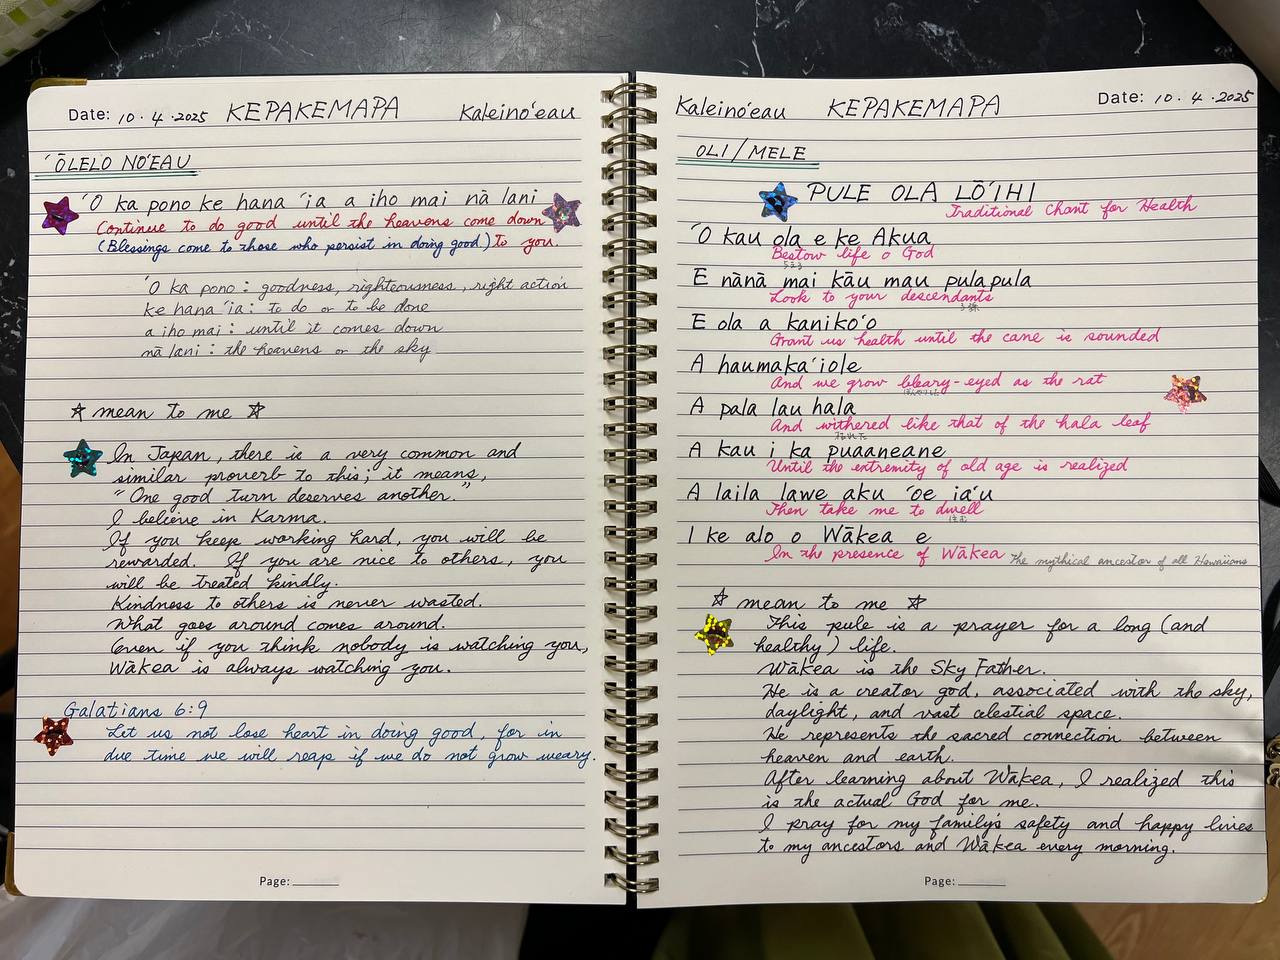 Date: 10.4.2025 KEPAKEMAPA Kaleino'eau
'ŌLELO NO'EAU
'O ka pono ke hana 'ia a iho mai nā lani
Continue to do good until the heavens come down
(Blessings come to those who persist in doing good) to you.
'O ka pono : goodness, righteousness, right action
ke hana 'ia : to do or to be done
a iho mai : until it comes down
nā lani : the heavens or the sky
☆ mean to me ☆
In Japan, there is a very common and
similar proverb to this; it means,
"One good turn deserves another."
I believe in Karma.
If you keep working hard, you will be
rewarded. If you are nice to others, you
will be treated kindly.
Kindness to others is never wasted.
What goes around comes around.
Even if you think nobody is watching you,
Wākea is always watching you.
Galatians 6:9
Let us not lose heart in doing good, for in
due time we will reap if we do not grow weary.
Page:
Kaleino'eau KEPAKEMAPA Date: 10.4.2025
OLI/MELE
PULE OLA LŌ'IHI
Traditional Chant for Health
'O kau ola e ke Akua
Bestow life o God
E nānā mai kāu mau pulapula
Look to your descendants
子孫
E ola a kaniko'o
Grant us health until the cane is sounded
A haumaka'iole
And we grow bleary-eyed as the rat
A pala lau hala
And withered like that of the hala leaf
A kau i ka puaaneane
Until the extremity of old age is realized
A laila lawe aku 'oe ia'u
Then take me to dwell
住む
I ke alo o Wākea e
In the presence of Wākea The mythical ancestor of all Hawaiians
☆ mean to me ☆
This pule is a prayer for a long (and
healthy) life.
Wākea is the Sky Father.
He is a creator god, associated with the sky,
daylight, and vast celestial space.
He represents the sacred connection between
heaven and earth.
After learning about Wākea, I realized this
is the actual God for me.
I pray for my family's safety and happy lives
to my ancestors and Wākea every morning.
Page: